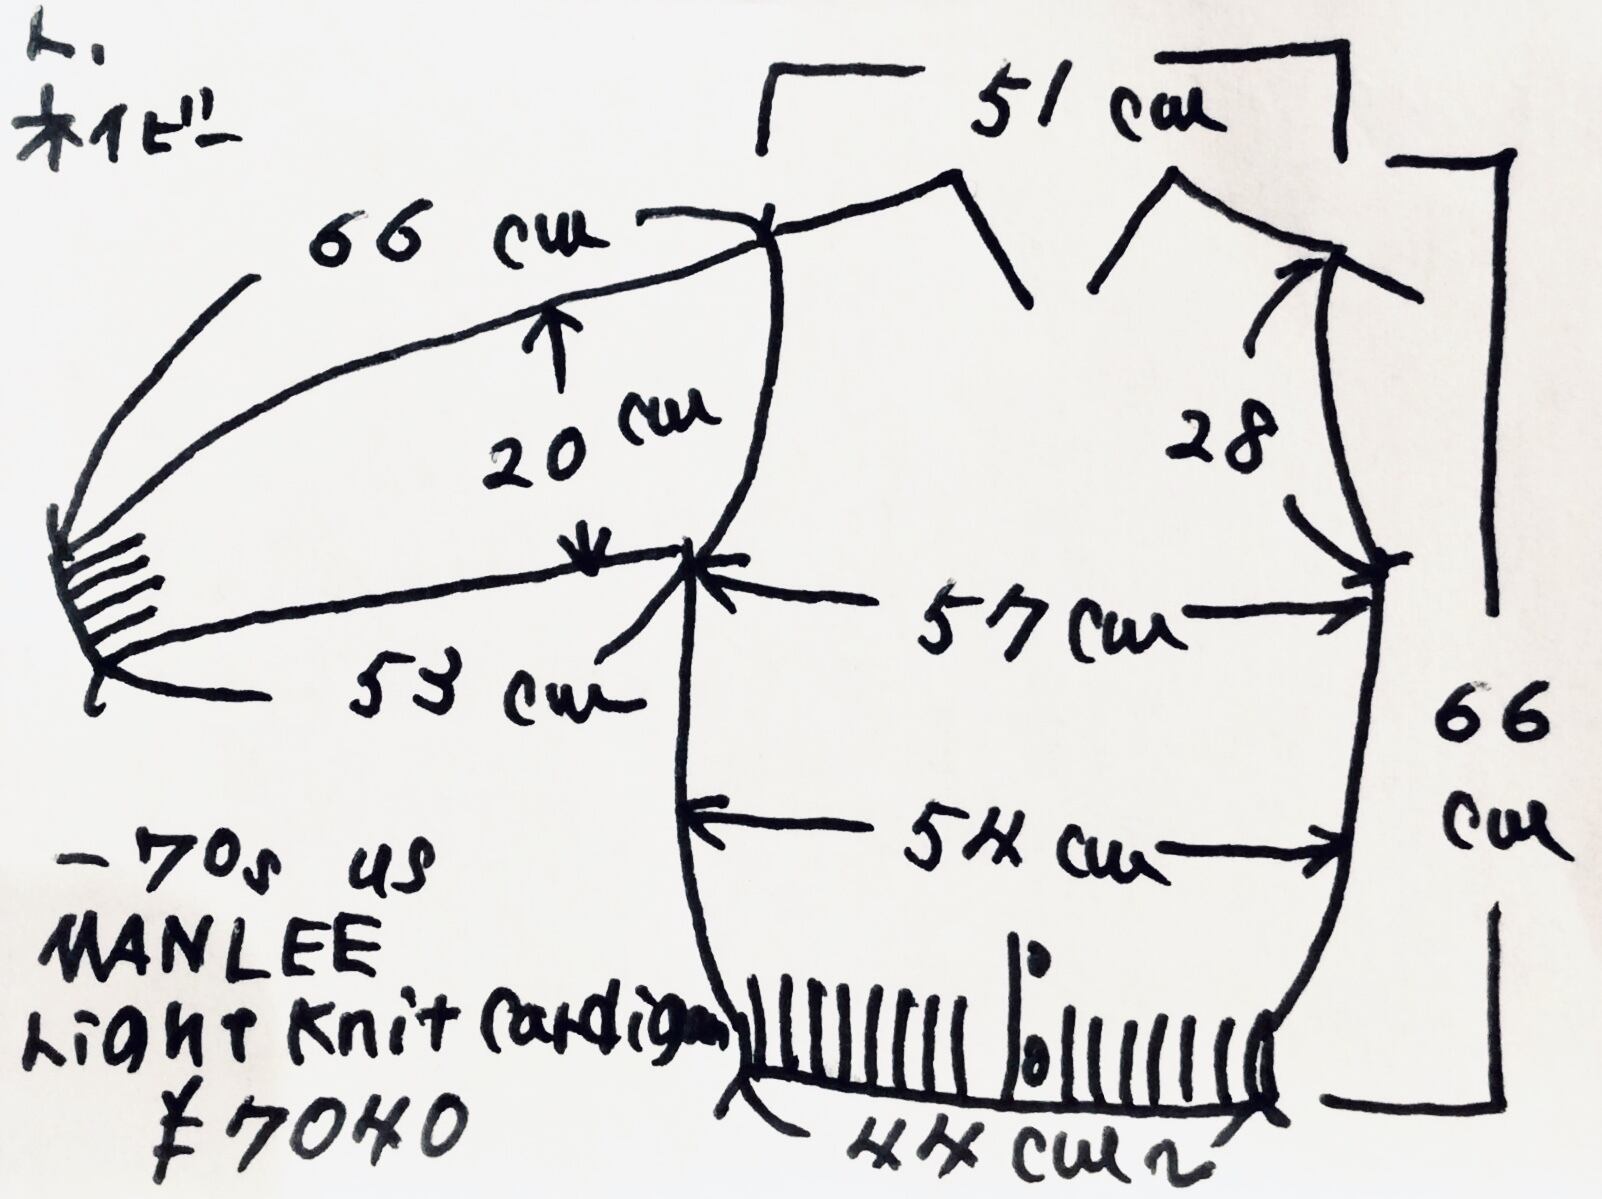 L.
ネイビー
51 cm
66 cm
20 cm
28
57 cm
53 cm
66
cm
54 cm
-70s us
MANLEE
Light Knit Cardigan
¥7040
44 cm~